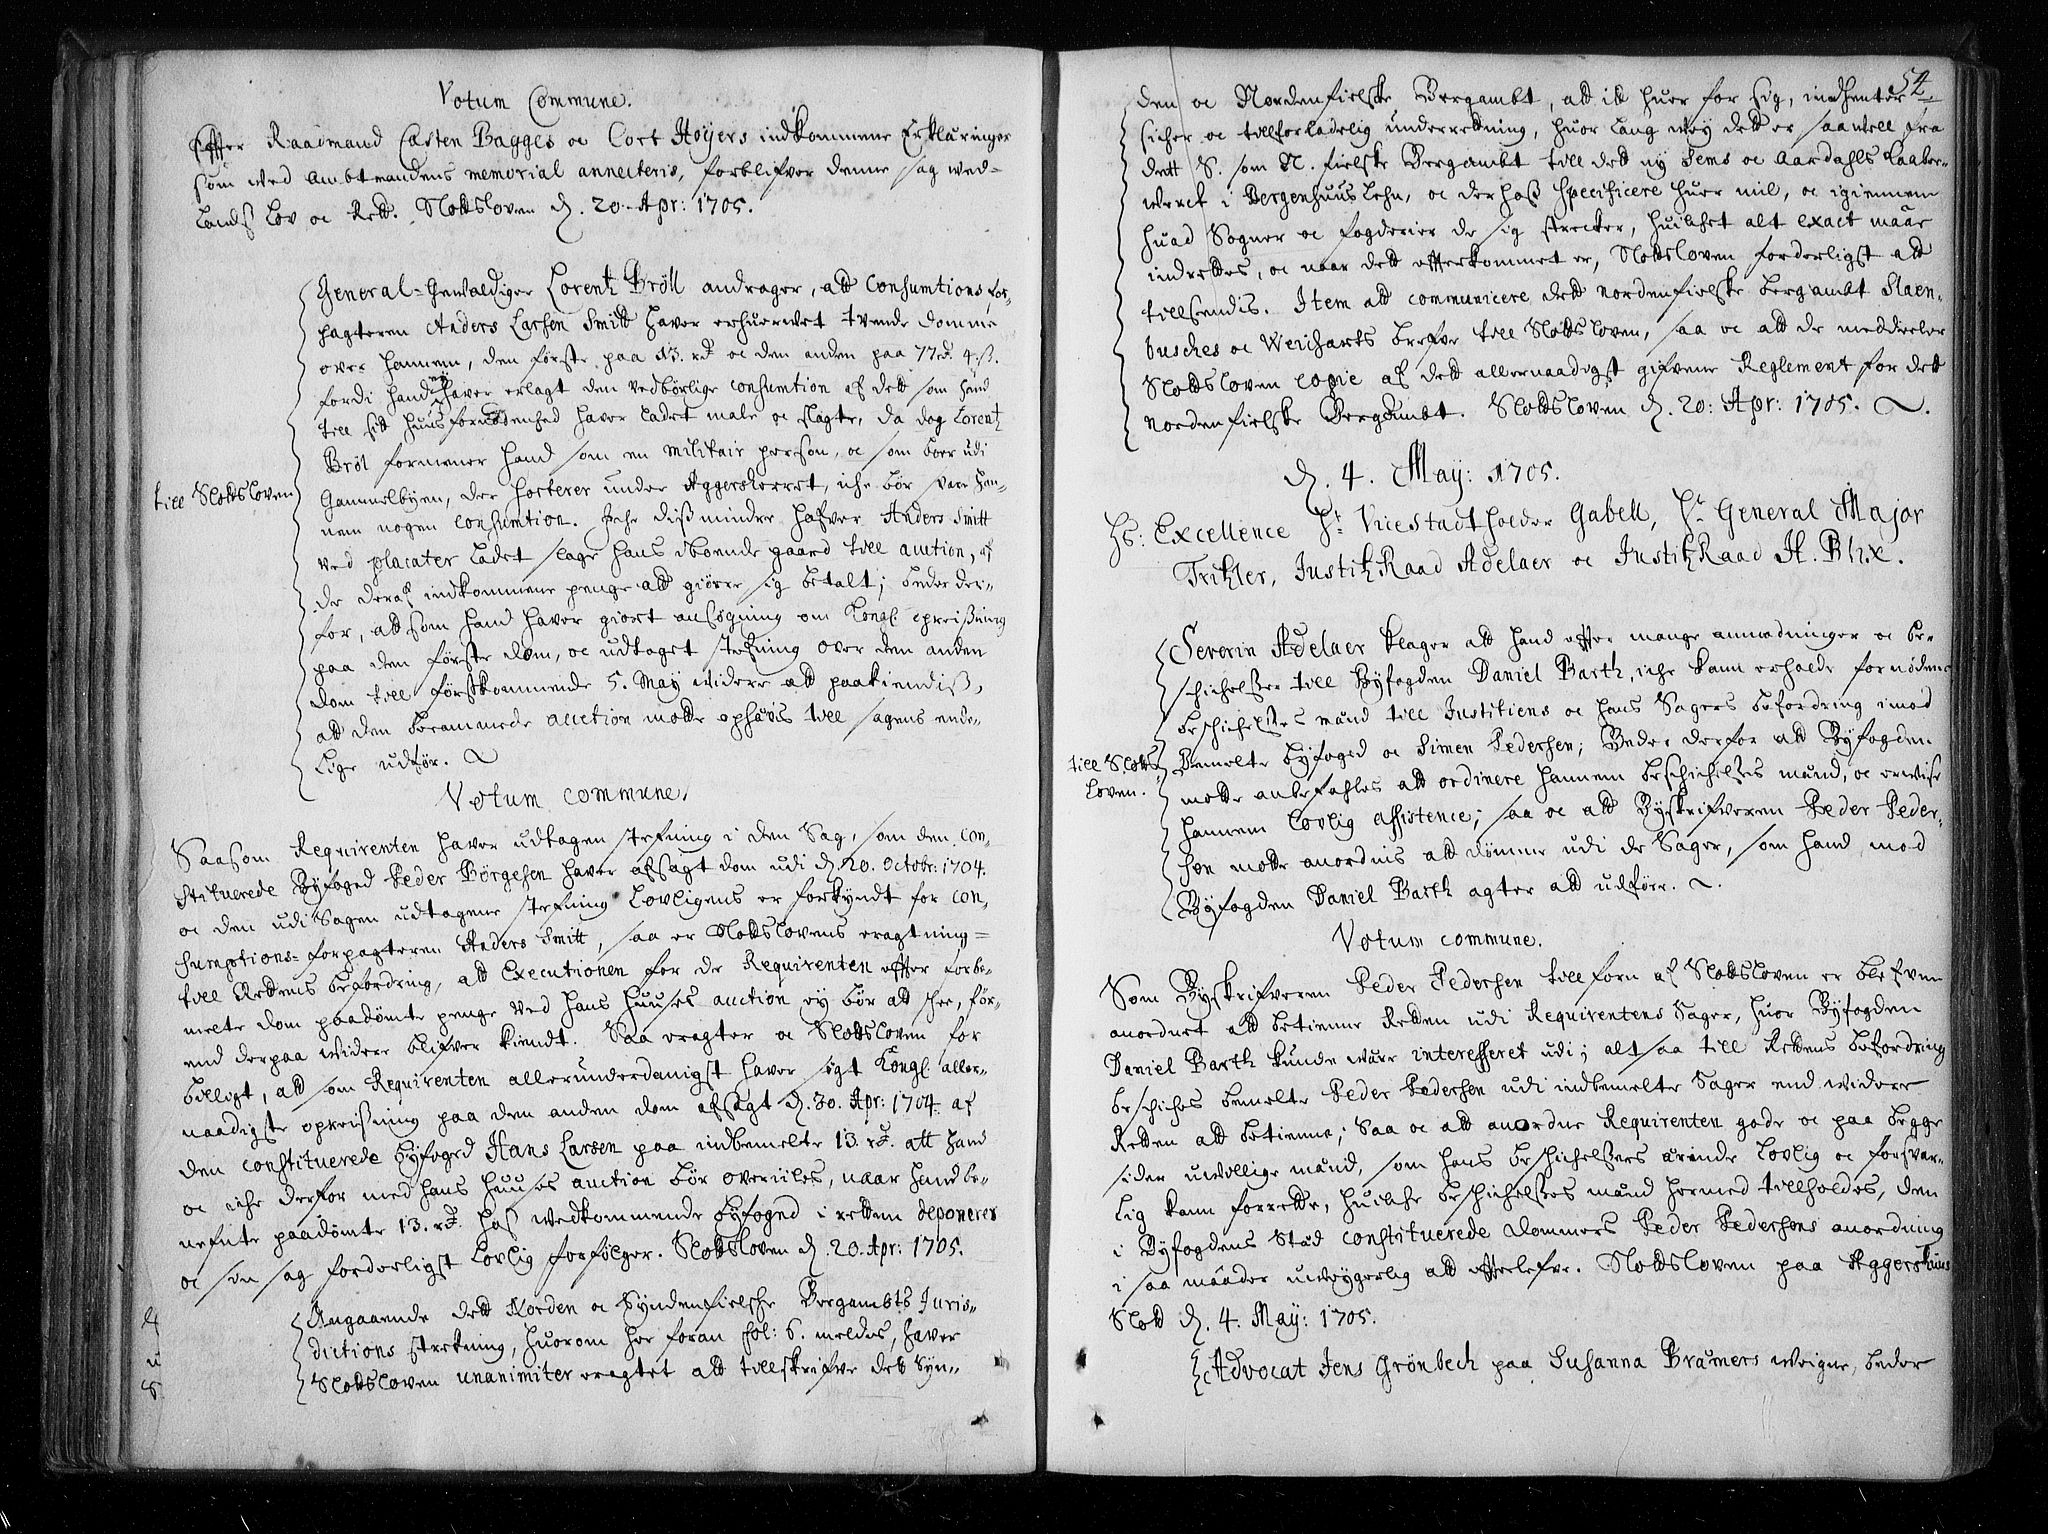 Votum Commune.
Effter Raadmand Casten Bagges oc Cort Høÿers indkommene Erklæringer
som wed Ambtmandens memorial annecteris, forblifver denne sag wed
Landß Lov oc Rett. Slottsloven d. 20. Apr: 1705.
General-Gewaldiger Lorentz Bröll andrager, att Consumtions for-
pagteren Anders Larsen Smitt haver erhuervet tvende domme
over hannem, den første paa 13. rd. oc den anden paa 77 rd. 4. ß.
fordi hand ej haver erlagt den vedbørlige consumtion af dett som hand
till sit huus fornødenhed haver ladet male oc slagte, da dog Lorentz
Bröl formener hand som en militair person, oc som boer udi
till Slottsloven
Gammelbyen, der sorterer under Aggersherret, iche bør svare han-
nem nogen consumtion. Iche dißmindre hafver Anders Smitt
ved placater ladet slage hans iboende gaard till auction, af
de deraf indkommene penge att giøre sig betalt; beder der-
for, att som hand haver giort ansøgning om Kongl. opreißning
paa den første dom, oc udtaget stefning over den anden
dom till førstkommende 5. Maÿ widere att paakiendiß,
att den berammede auction motte ophævis till sagens ende-
lige udfør.
Votum commune.
Saasom Requirenten haver udtagen stefning i den Sag, som den con-
stituerede Bÿfoged Peder Børgesen haver afsagt dom udi d. 20. Octobr: 1704.
oc den udi Sagen udtagene stefning Lovligens er forkyndt for con-
sumptions-forpagteren Anders Smitt, saa er Slottslovens eragtning
till Rettens befordring, att Executionen for de Requirenten effter forbe-
melte dom paadømte penge ved hans huuses auction eÿ bør att schee, før-
end derpaa widere blifver kiendt. Saa eragter oc Slottsloven for
billigt, att som Requirenten allerunderdanigst haver søgt Kongl. aller-
naadigste opreißning paa den anden dom afsagt d. 30. Apr: 1704 af
den constituerede Bÿfoged Hans Larsen paa indbemelte 13. rd. att hand
oc iche derfor med hans huuses auction bør overiiles, naar hand be-
nefnte paadømte 13. rd. hoß wedkommende Bÿfoged i retten deponerer
oc sin sag forderligst Lovlig forfølger. Slottsloven d. 20. Apr: 1705.
Angaaende dett Norden oc Syndenfielsche Bergambts Juris-
dictions strekning, huorom her foran fol: 6. meldes, haver
Slottsloven unanimiter eragtet att tillskrifve det Syn-
54
den oc Nordenfielske Bergambt, att it huer for sig, indhenter
sicher oc tillforladelig underretning, huor lang weÿ dett er saawell fra
dett S. som N. fielske Bergambt till det nÿ Sems oc Aardahls Kaaber-
werck i Bergenhuus Lehn, oc derhoß specificere huer mil, oc igiennem
huad Sogner oc fogderier de sig strecker, huilchet alt exact maae
indrettes, oc naar dett effterkommet er, Slottsloven forderligst att
tillsendis. Item att communicere dett nordenfielske bergambt Slaen-
busches oc Weicharts brefve till Slottsloven, saa oc att de meddeeler
Slottsloven copie af dett allernaadigst gifvene Reglement for dett
nordenfielske Bergambt. Slottsloven d. 20: Apr: 1705.
d. 4. Maÿ: 1705.
Hs: Excellence Hr. Viicestatholder Gabell, Hr. General Major
Trihler, Justitz Raad Adelaer oc Justitz Raad H. Blix.
Severin Adelaer klager att hand effter mange anmodninger oc be-
schichelser till Bÿfogden Daniel Barth, iche kann erholde fornøden
beschichelses mænd till Justitiens oc hans Sagers befordring imod
till Slotts
loven.
Bemelte bÿfoged oc Simen Pedersen; Beder derfor att Bÿfogden
motte anbefahles att ordinere hannem beschichelses mænd, oc erwise
hannem lovlig assistence; saa oc att Bÿskrifveren Peder Peder-
sen motte anordnis att dømme udi de Sager, som hand mod
Bÿfogden Daniel Barth agter att udføre.
Votum commune.
Som Bÿskrifveren Peder Pedersen till forn af Slottsloven er blefven
anordnet att betienne Retten udi Requirentens Sager, huor Bÿfogden
Daniel Barth kunde være interesseret udi; alt saa till Rettens befordring
beschiches bemelte Peder Pedersen udi indbemelte Sager end widere
Retten att betienne; Saa oc att anordne Requirenten gode oc paa begge
sider uvillige mænd, som hans beschichelsers ærende Lovlig oc forsvar-
lig kann forrette, huilche beschichelses mænd hermed tillholdes, den
i Bÿfogdens Stæd constituerede Dommers Peder Pedersens anordning
i saa maader uweÿgerlig att effterlefve. Slottsloven paa Aggershuus
Slott d. 4. Maÿ: 1705.
Advocat Jens Grönbech paa Susanna Bramers weigne, beder